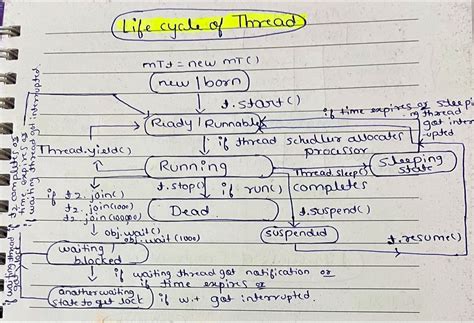 Life cycle of Thread
mTt = new mT()
new/born
t.start()
if time expires or sleeping thread got interrupted
Ready/Runnable
if thread schedler allocates processor
Thread.yield()
Running
Thread.sleep()
Sleeping state
t.stop()
if run() completes
if t2.join()
t2.join(1000)
t2.join(1000,100)
Dead
t.suspend()
suspended
t.resume()
obj.wait()
obj.wait(1000)
waiting/blocked
if waiting thread got notification or
if time expires or
if w.t got interrupted.
another waiting state to get lock
if waiting thread got lock
if t2 completes or
time expires or
waiting thread got interrupted